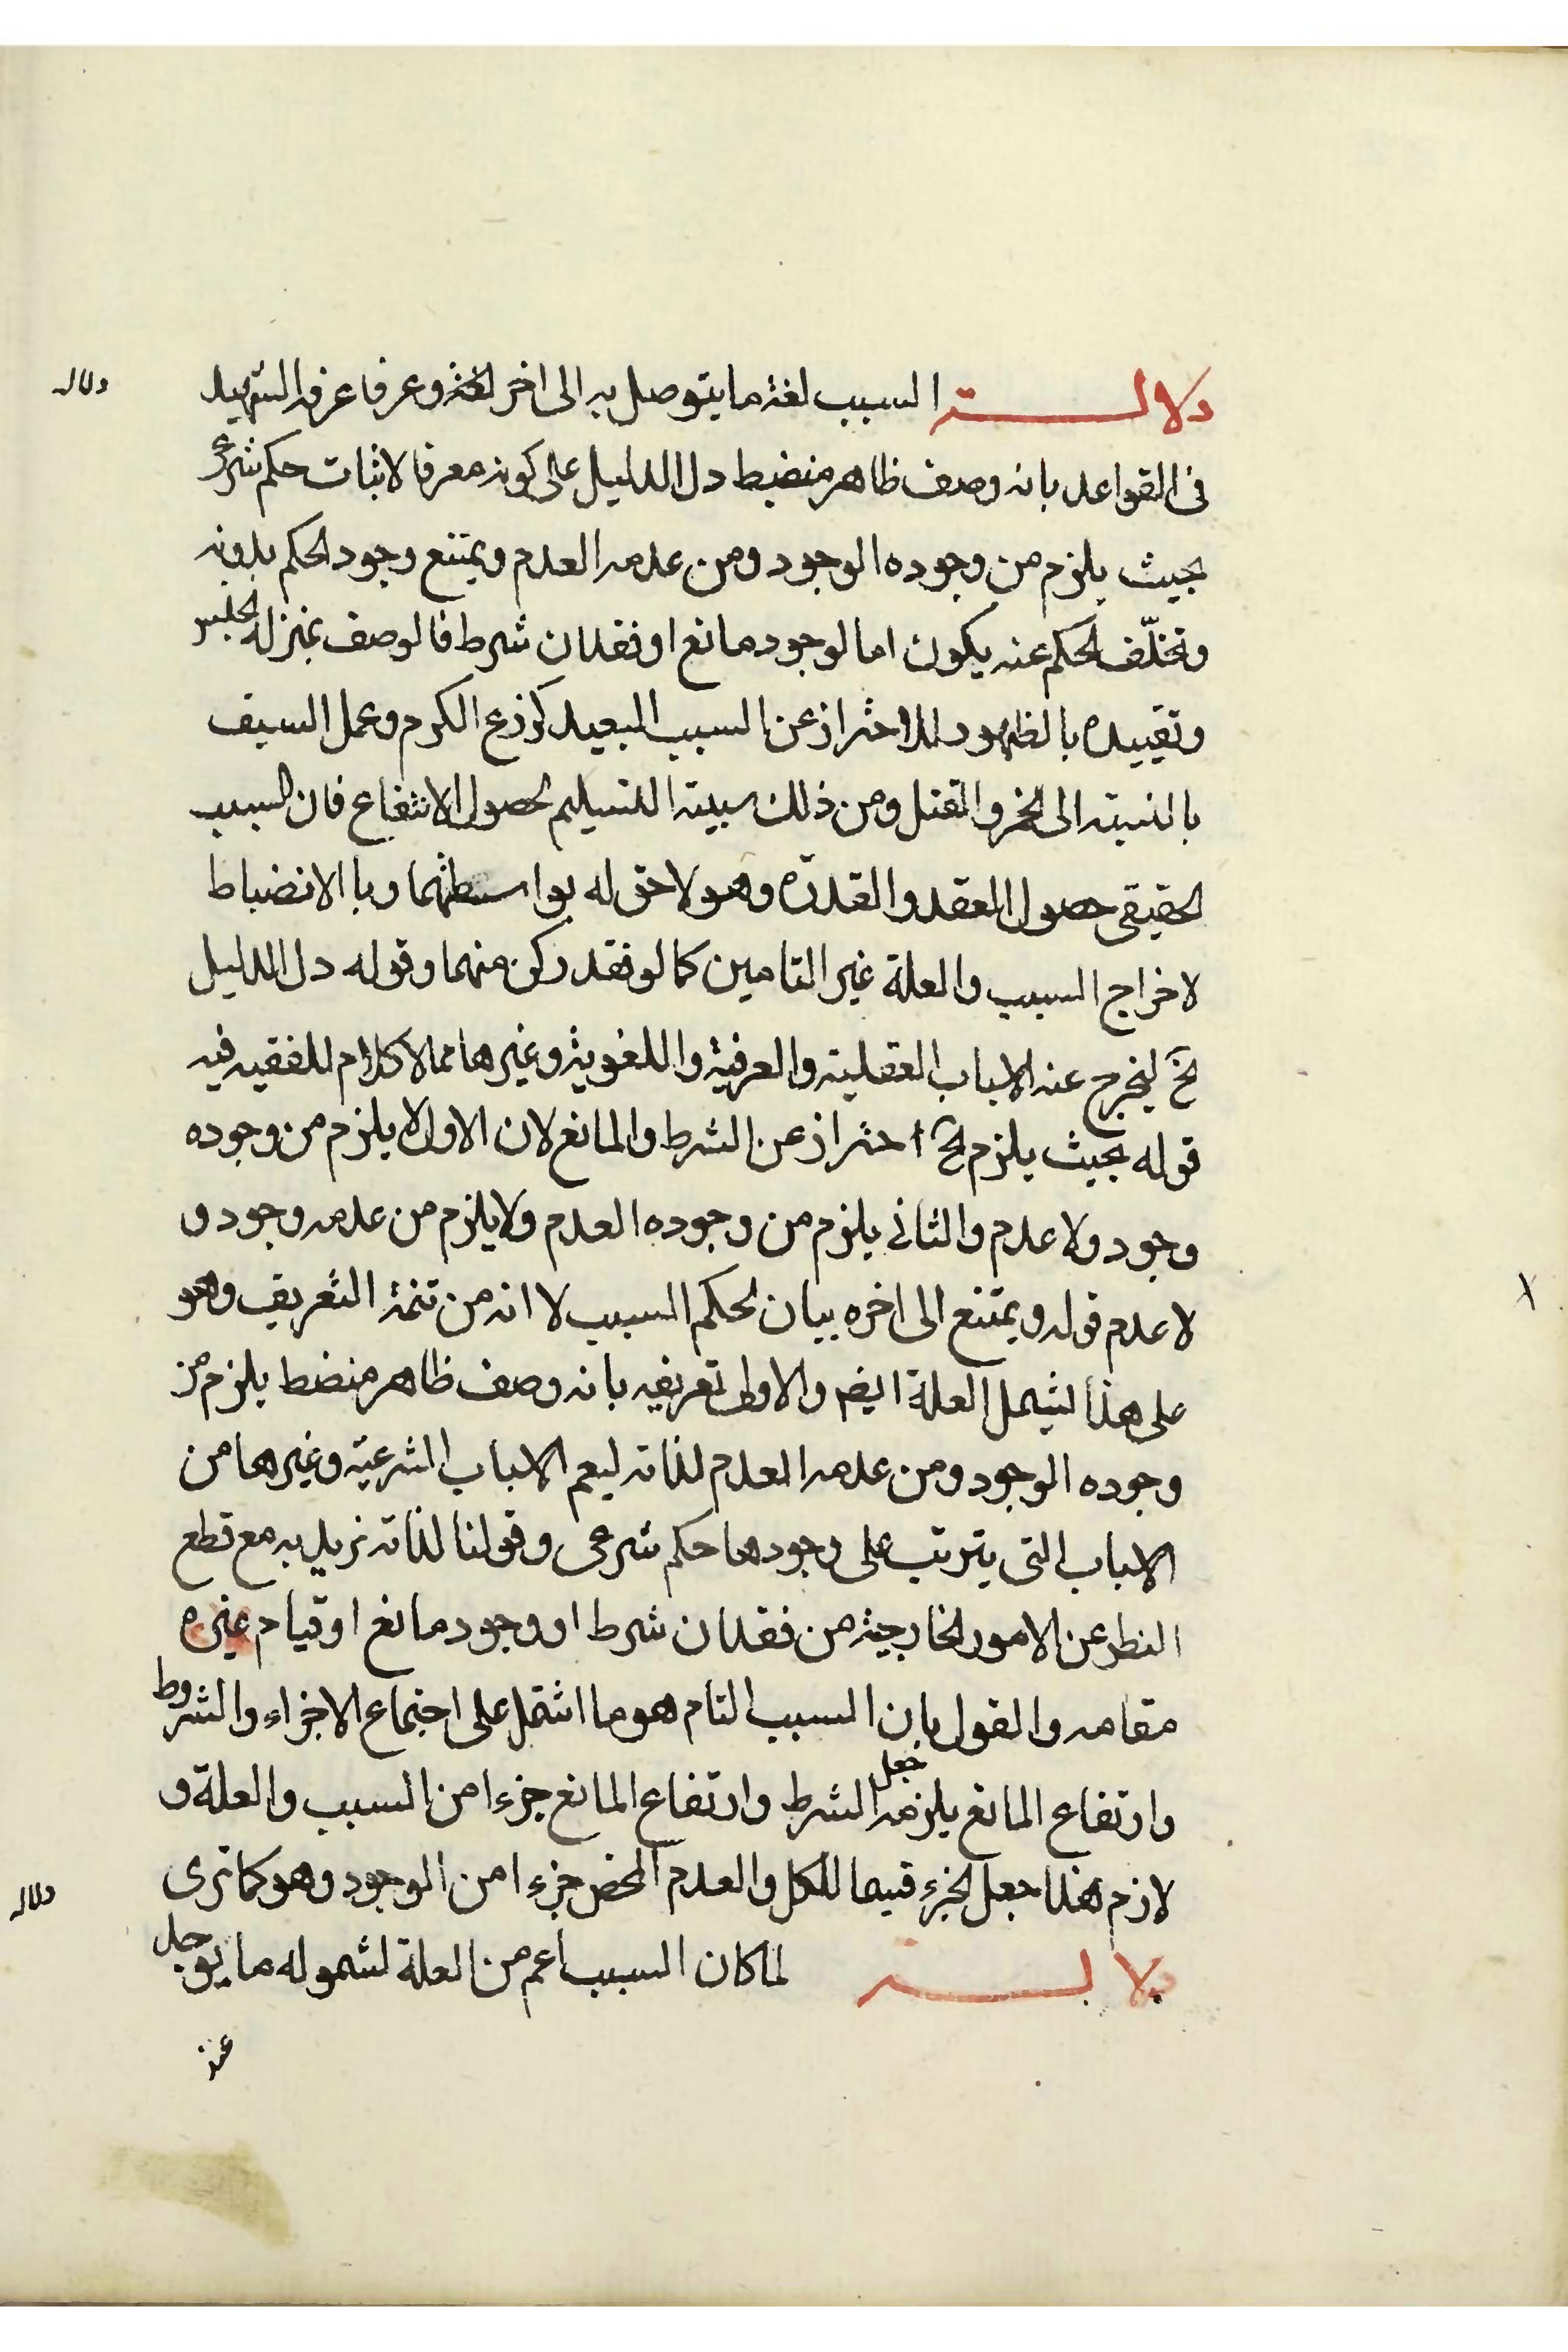 دلالة السبب لغة ما يتوصل به الى اخر لغة وعرفا عرفه الشهيد
دلاله
فى القواعد بانه وصف ظاهر منضبط دل الدليل على كونه معرفا لاثبات حكم شرعى
بحيث يلزم من وجوده الوجود ومن عدمه العدم ويمتنع وجود الحكم بدونه
وتخلّف الحكم عنه يكون اما لوجود مانع او فقدان شرط فالوصف بمنزلة الجنس
وتقييده بالظهور للاحتراز عن السبب البعيد كزرع الكرم وعمل السيف
بالنسبة الى الخمر والقتل ومن ذلك سببية التسليم لحصول الانتفاع فان السبب
الحقيقى حصول العقد والقدرة وهو لاحق له بواسطتهما وبا الانضباط
لاخراج السبب والعلة غير التامين كما لو فقد ركن منهما وقوله دل الدليل
الخ ليخرج عنه الاسباب العقلية والعرفية واللغوية وغيرها مما لا كلام للفقيه فيه
قوله بحيث يلزم الخ احتراز عن الشرط والمانع لان الاول لا يلزم من وجوده
وجود ولا عدم والثانى يلزم من وجوده العدم ولا يلزم من عدمه وجود و
لا عدم قوله ويمتنع الى اخره بيان لحكم السبب لا انه من تتمة التعريف وهو
على هذا ليشمل العلة ايضا والاولى تعريفه بانه وصف ظاهر منضط يلزم من
وجوده الوجود ومن عدمه العدم لذاته ليعم الاسباب الشرعية وغيرها من
الاسباب التى يترتب على وجودها حكم شرعى وقولنا لذاته نريد به مع قطع
النظر عن الامور الخارجية من فقدان شرط او وجود مانع او قيام غيره
مقامه والقول بان السبب التام هو ما اشتمل على اجتماع الاجزاء والشروط
وارتفاع المانع يلزمه جعل الشرط وارتفاع المانع جزءا من السبب والعلة و
لازم هذا جعل الجزء قسيما للكل والعدم المحض جزءا من الوجود وهو كما ترى
دلاله
دلالة لما كان السبب اعم من العلة لشموله ما يوجد
عنه